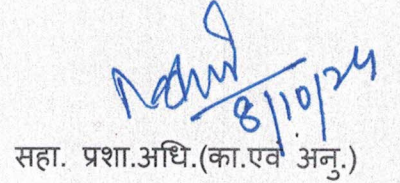 8/10/24
सहा. प्रशा.अधि.(का.एवं अनु.)